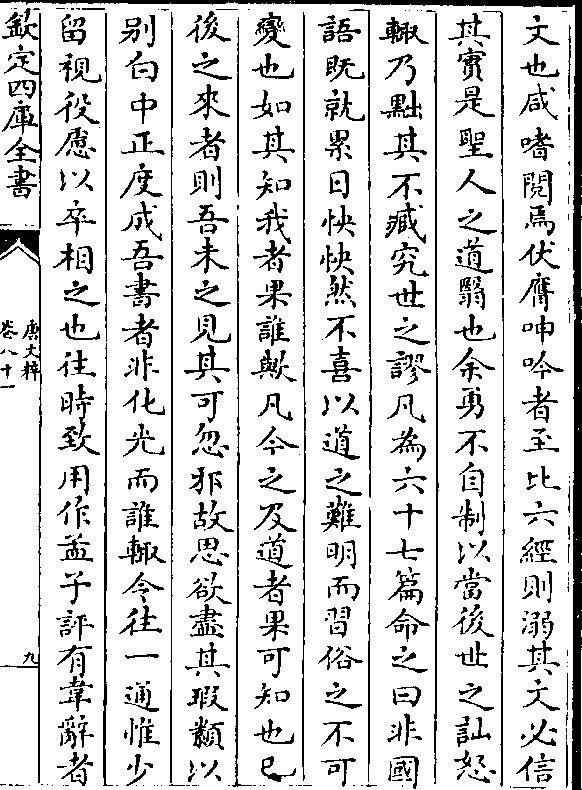 文也咸嗜閱焉伏膺呻吟者至比六經則溺其文必信
其實是聖人之道翳也余勇不自制以當後世之訕怒
輒乃黜其不臧究世之謬凡為六十七篇命之曰非國
語既就累日怏怏然不喜以道之難明而習俗之不可
變也如其知我者果誰歟凡今之及道者果可知也已
後之來者則吾未之見其可忽邪故思欲盡其瑕纇以
别白中正度成吾書者非化光而誰輒令往一通惟少
留視役慮以卒相之也往時致用作孟子評有韋辭者
欽定四庫全書
唐文粹
卷八十一
九